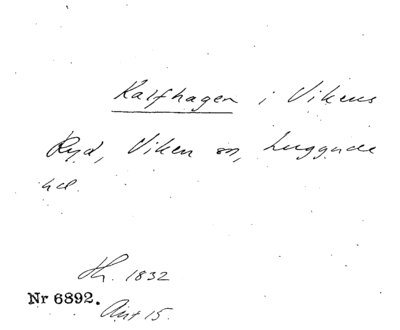 Kalfhagen i Vikens
Ryd, Viken sn, Luggude
hd.
Hh. 1832
Nr 6892.
Akt 15.